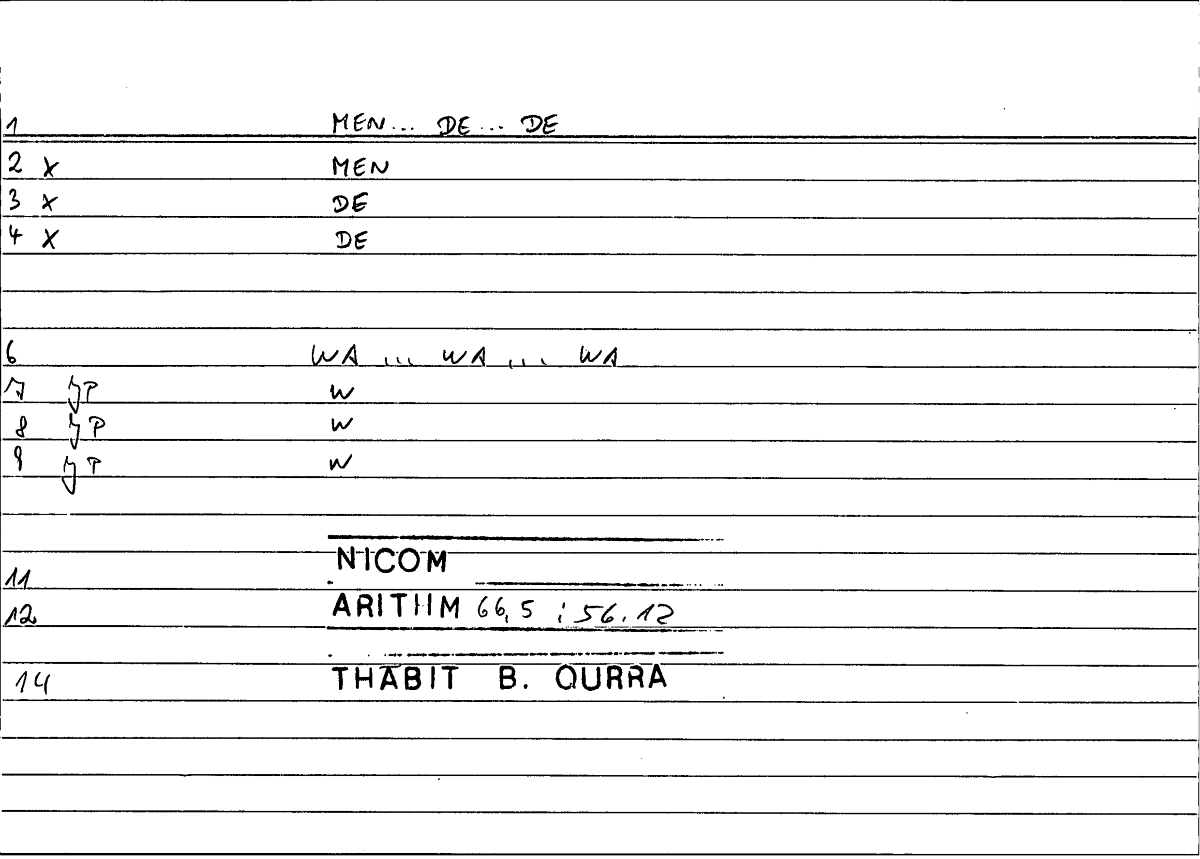 1 MEN... DE... DE
2 X MEN
3 X DE
4 X DE
6 WA ... WA ... WA
7 JP W
8 JP W
9 JP W
NICOM
11
12 ARITHM 66,5 ; 56.12
14 THĀBIT B. QURRA